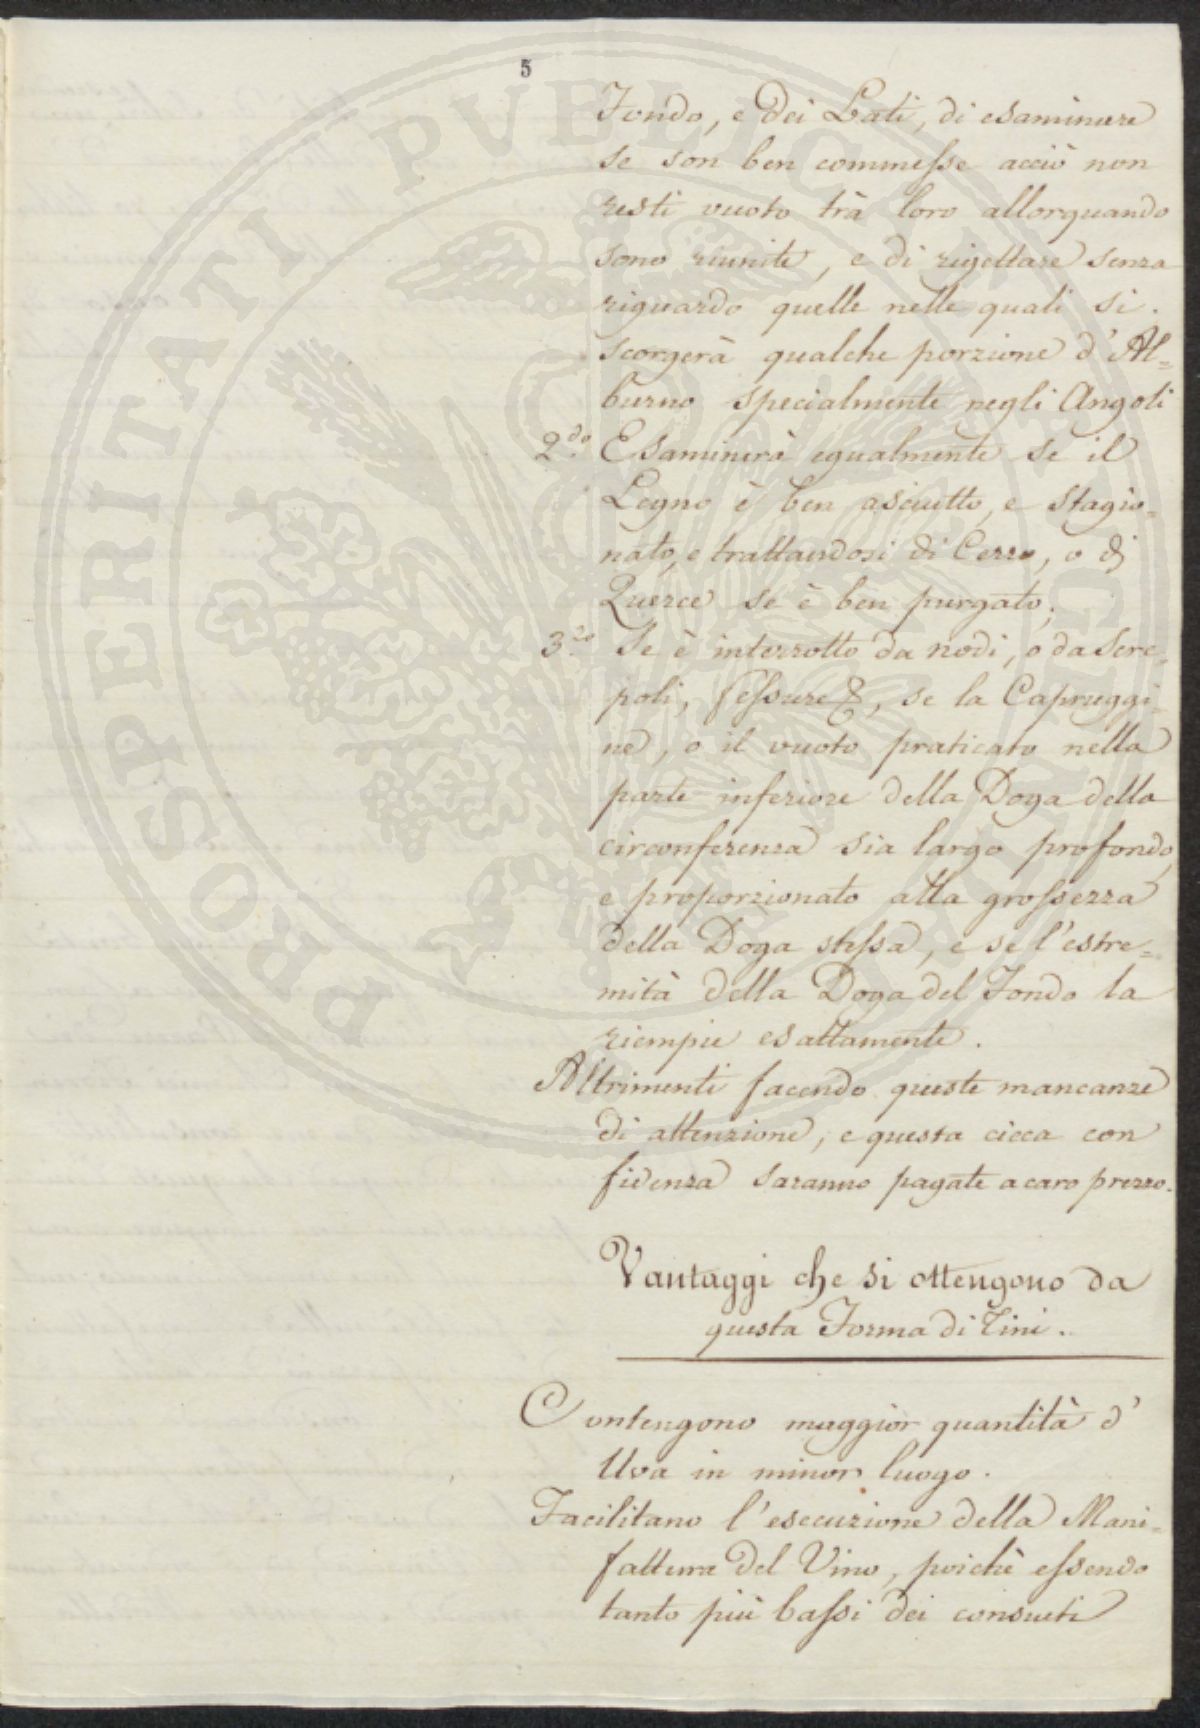 5
Fondo, e dei Lati, di esaminare
se son ben commesse acciò non
resti vuoto trà loro allorquando
sono riunite, e di rigettare senza
riguardo quelle nelle quali si
scorgerà qualche porzione d'Al=
burno specialmente negli Angoli
2.do Esaminerà egualmente se il
Legno è ben asciutto, e stagio=
nato, e trattandosi di Cerro, o di
Querce se è ben purgato.
3.zo Se è interrotto da nodi, o da Scre=
poli, fessure &, se la Capruggi=
ne, o il vuoto praticato nella
parte inferiore della Doga della
circonferenza sia largo profondo,
e proporzionato alla grossezza
della Doga stessa, e se l'estre=
mità della Doga del Fondo la
riempie esattamente.
Altrimenti facendo queste mancanze
di attenzione, e questa cieca con
fidenza saranno pagate a caro prezzo.
Vantaggi che si ottengono da
questa Forma di Tini.
Contengono maggior quantità d'
Uva in minor luogo.
Facilitano l'esecuzione della Mani=
fattura del Vino, poichè essendo
tanto più bassi dei consueti
PROSPERITATI PUBLICAE AUGENDAE